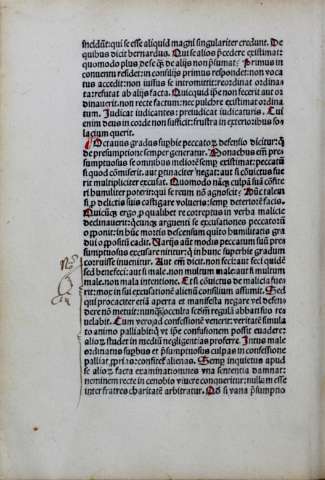 incidũt: qui se esse aliquid magni singulariter credunt. De
quibus dicit bernardus. Qui se alios p̃cedere existimat:
quomodo plus de se q̃ de alijs non p̃sumat: Primus in
conventu residet: in consilijs primus respondet: non voca
tus accedit: non iussus se intromittit: reordinat ordina
ta: refutat ab alijs facta. Quicquid ip̃e non fecerit aut or
dinauerit. non recte factum: nec pulchre existimat ordina
tum. Judicat iudicantes: preiudicat iudicaturis. Cui
enim deus in corde non sufficit: frustra in exterioribus so
lacium querit.
Octauus gradus supbie peccatoꝝ defensio dicitur: q̃
de presumptione semper generatur. Monachus em̃ pre
sumptuosus se omnibus meliorẽ semp existimat: peccatũ
si quod cõmiserit. aut pernaciter negat: aut si cõuictus fue
rit multipliciter excusat. Quomodo nãq̃ culpã suã cõfite
ri humiliter poterit: qui se reum nõ agnoscit. Hũc talem
si ꝓ delictis suis castigare volueris: semp deteriorẽ facis.
Quicũq̃ ergo ꝑ qualibet re cõtreptus in verba malicie
declinauerit: q̃cunq̃ arguenti se excusationes peccatorũ
opponit: in hũc motis descensum quito humilitatis gra
dui oppositũ cadit. Varijs aũt modis peccatum suũ pres
sumptuosus excusare nititur: q̃ in hunc superbie gradum
corruisse inuenitur. Aut em̃ dicit. non feci: aut feci quidẽ
sed benefeci: aut si male. non multum male: aut si multum
male. non mala intentione. Et si cõuictus de malicia fue
rit: mox in sui excusationẽ alienũ consilium assumit. Sed
qui procaciter etiã aperta et manifesta negare vel defen
dere nõ metuit: nunq̃ occulta scd̃m regulã abbati suo re
uelabit. Cum vero ad confessionẽ venerit: veritatẽ simula
to animo palliabit: vt ip̃e confusionem possit euadere:
alios studet in mediũ negligentias proferre. Intus male
ordinatus supbus et p̃sumptuosus culpas in confessione
palliat. pprias: confitet alienas. Semp inquietus apud
se aliorꝝ facta examinat: omnes vna sententia damnat:
neminem recte in cenobio viuere conqueritur: nullam esse
inter fratres charitatẽ arbitratur. Qd si vana p̃sumptio